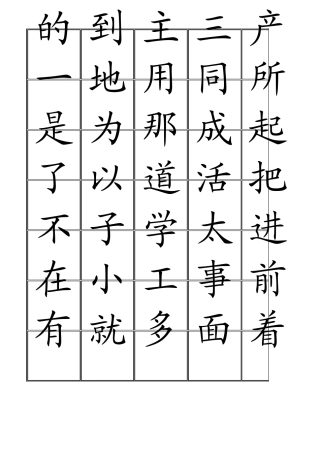 的到主三产
一地用同所
是为那成起
了以道活把
不子学太进
在小工事前
有就多面着